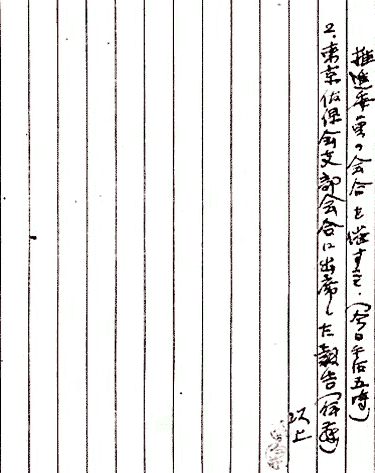 推進委員の会合を催す旨、(今日午后五時)
2.東京佐保会支部会合に出席した報告(伊藤)
以上